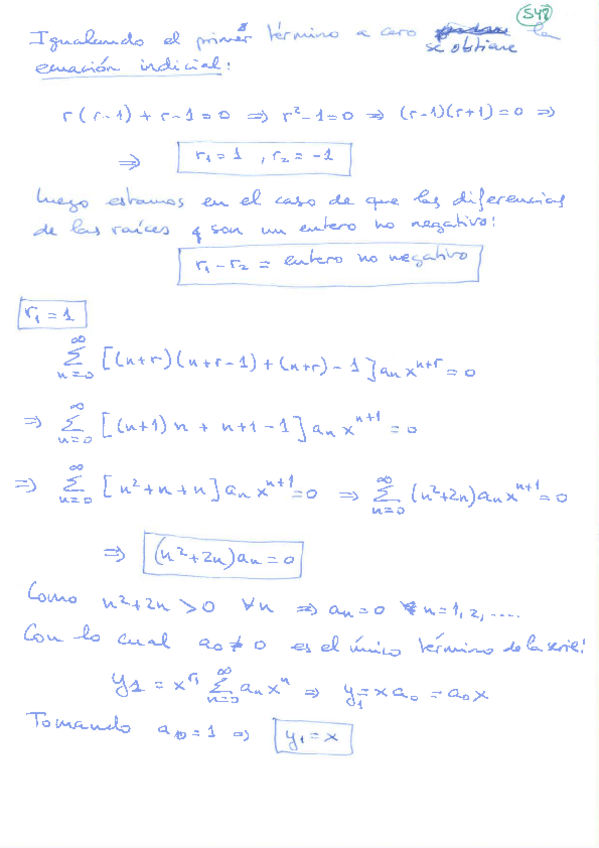 548
Igualando el primer término a cero se obtiene la
ecuación indicial:
r(r-1) + r-1 = 0 ⇒ r²-1=0 ⇒ (r-1)(r+1) = 0 ⇒
⇒ r₁ = 1 , r₂ = -1
Luego estamos en el caso de que las diferencias
de las raíces son un entero no negativo:
r₁ - r₂ = entero no negativo
r₁ = 1
∑_{n=0}^{∞} [(n+r)(n+r-1)+(n+r)-1] aₙ x^{n+r} = 0
⇒ ∑_{n=0}^{∞} [(n+1)n + n+1-1] aₙ x^{n+1} = 0
⇒ ∑_{n=0}^{∞} [n²+n+n] aₙ x^{n+1} = 0 ⇒ ∑_{n=0}^{∞} (n²+2n) aₙ x^{n+1} = 0
⇒ (n²+2n) aₙ = 0
Como n²+2n > 0 ∀n ⇒ aₙ = 0 ∀ n=1,2,....
Con lo cual a₀ ≠ 0 es el único término de la serie:
y₁ = x^{r₁} ∑_{n=0}^{∞} aₙ xⁿ ⇒ y₁ = x a₀ = a₀ x
Tomando a₀ = 1 ⇒ y₁ = x